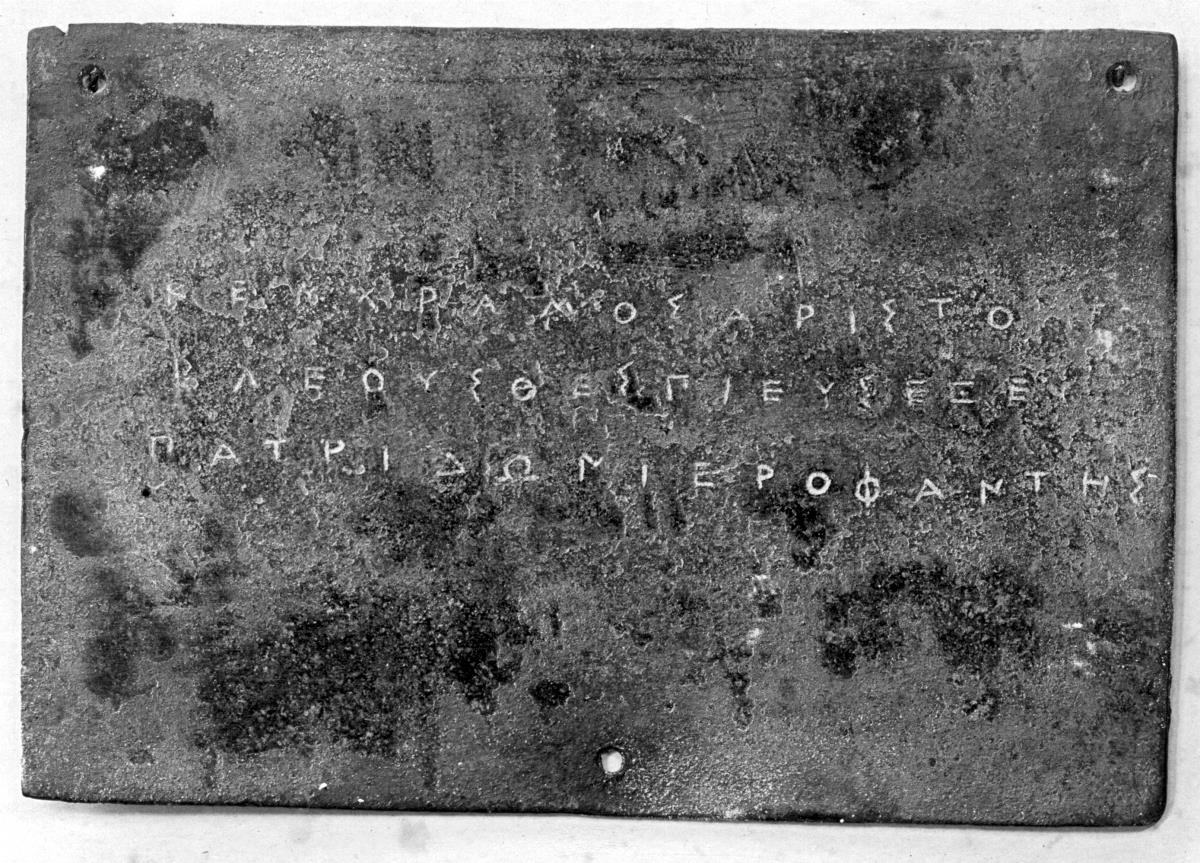 ΚΕΝΧΡΑΜΟΣΑΡΙΣΤΟ
ΚΛΕΟΥΣΘΕΣΠΙΕΥΣΕΞΕΥ
ΠΑΤΡΙΔΩΝΙΕΡΟΦΑΝΤΗΣ